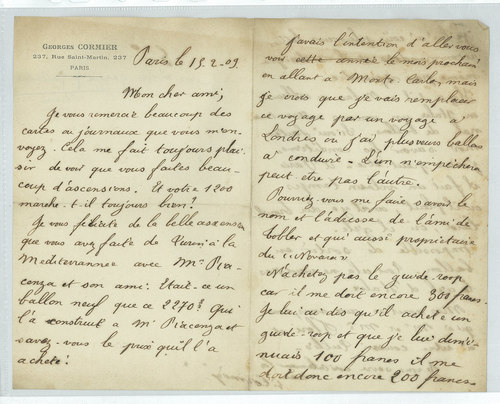 GEORGES CORMIER
237, Rue Saint-Martin, 237
PARIS
Paris le 15-2-09
Mon cher ami,
Je vous remercie beaucoup des
cartes ou journaux que vous m'en-
voyez. Cela me fait toujours plai-
sir de voir que vous faites beau-
coup d'ascensions. Et votre 1200
marche-t-il toujours bien?
Je vous félicite de la belle ascension
que vous avez faite de Turin à la
Mediterrannée avec Mr
et son ami. Etait-ce un
ballon neuf que ce 2270? Qui
l'a construit a Mr et
savez-vous le prix qu'il l'a
acheté?
J'avais l'intention d'aller vous
voir cette année le mois prochain
en allant a Monte Carlo, mais
je crois que je vais remplacer
ce voyage par un voyage a
Londres où j'ai plusieurs ballons
a conduire. L'un n'empêchera
peut être pas l'autre.
Pourriez-vous me faire savoir le
nom et l'adresse de l'ami de
et qui aussi propriétaire
du
N'achetez pas le guide-rop
car il me doit encore 300 francs.
Je lui ai dis qu'il achete un
guide-rop et que je lui dimi-
nuais 100 francs il me
doit donc encore 200 francs.